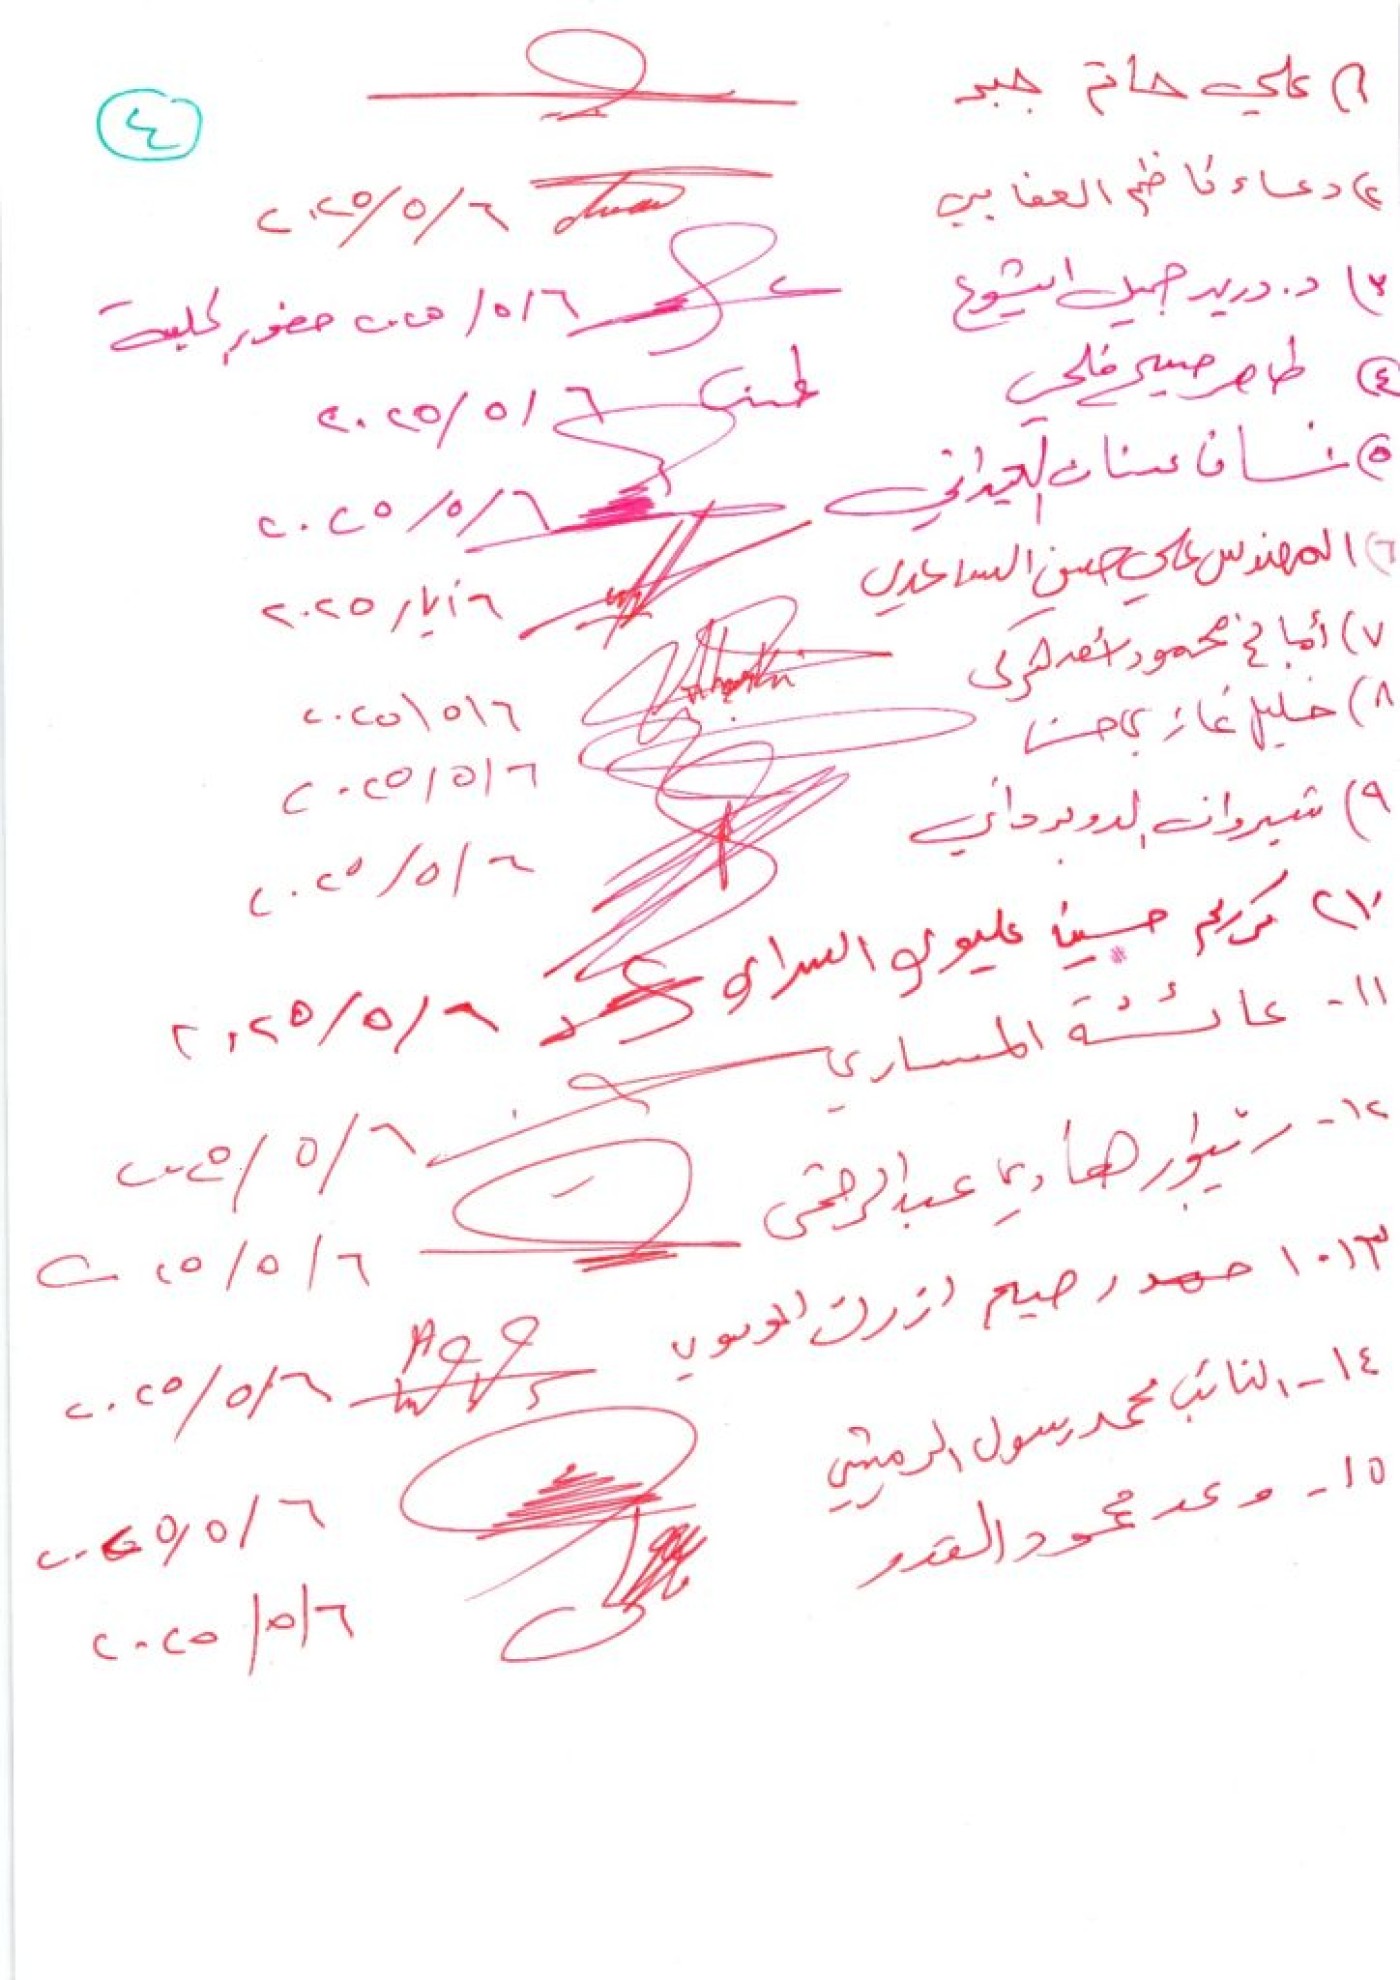 ٤
١) علي حاتم جبر
٢) دعاء ناظم العقابي ٢٠٢٥/٥/٦
٣) د. دريد جميل ايشوع ٢٠٢٥/٥/٦ حضور جلسة
٤) طاهر صبيح فلحي ٢٠٢٥/٥/٦
٥) عدنان ٢٠٢٥/٥/٦
٦) المهندس علي حسن الساعدي ٦ أيار ٢٠٢٥
٧) محمود ٢٠٢٥/٥/٦
٨) خليل غازي حسن ٢٠٢٥/٥/٦
٩) شيروان الدوبرداني ٢٠٢٥/٥/٦
١٠) كريم حسين عليوي السراي ٢٠٢٥/٥/٦
١١- عائشة المساري ٢٠٢٥/٥/٦
١٢- رێبوار هادي عبدالرحمن ٢٠٢٥/٥/٦
١٣- رحيم ازرق الموسوي ٢٠٢٥/٥/٦
١٤- النائب محمد رسول الرميثي ٢٠٢٥/٥/٦
١٥- وعد محمود القدو ٢٠٢٥/٥/٦